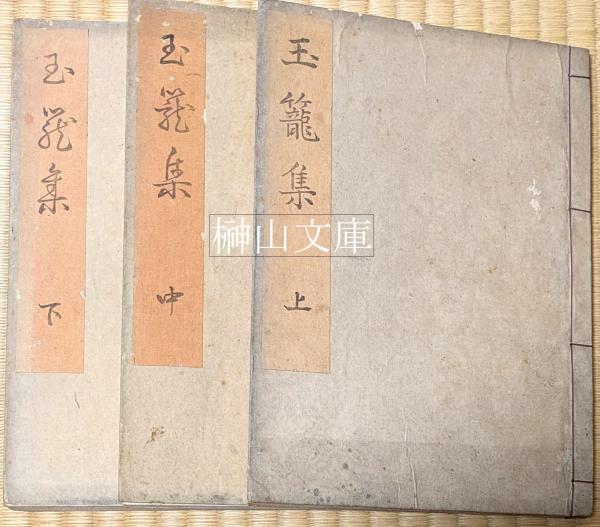 玉籠集 上
玉籠集 中
玉籠集 下
榊山文庫